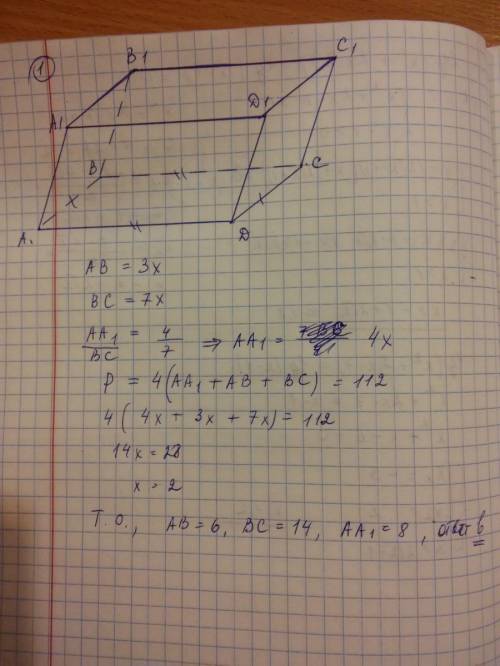 1
B1 C1
A1 D1
B C
x
A. D
AB = 3x
BC = 7x
AA1/BC = 4/7 ⇒ AA1 = 4x
P = 4(AA1 + AB + BC) = 112
4( 4x + 3x + 7x) = 112
14x = 28
x = 2
Т.О., AB = 6, BC = 14, AA1 = 8, ответ в